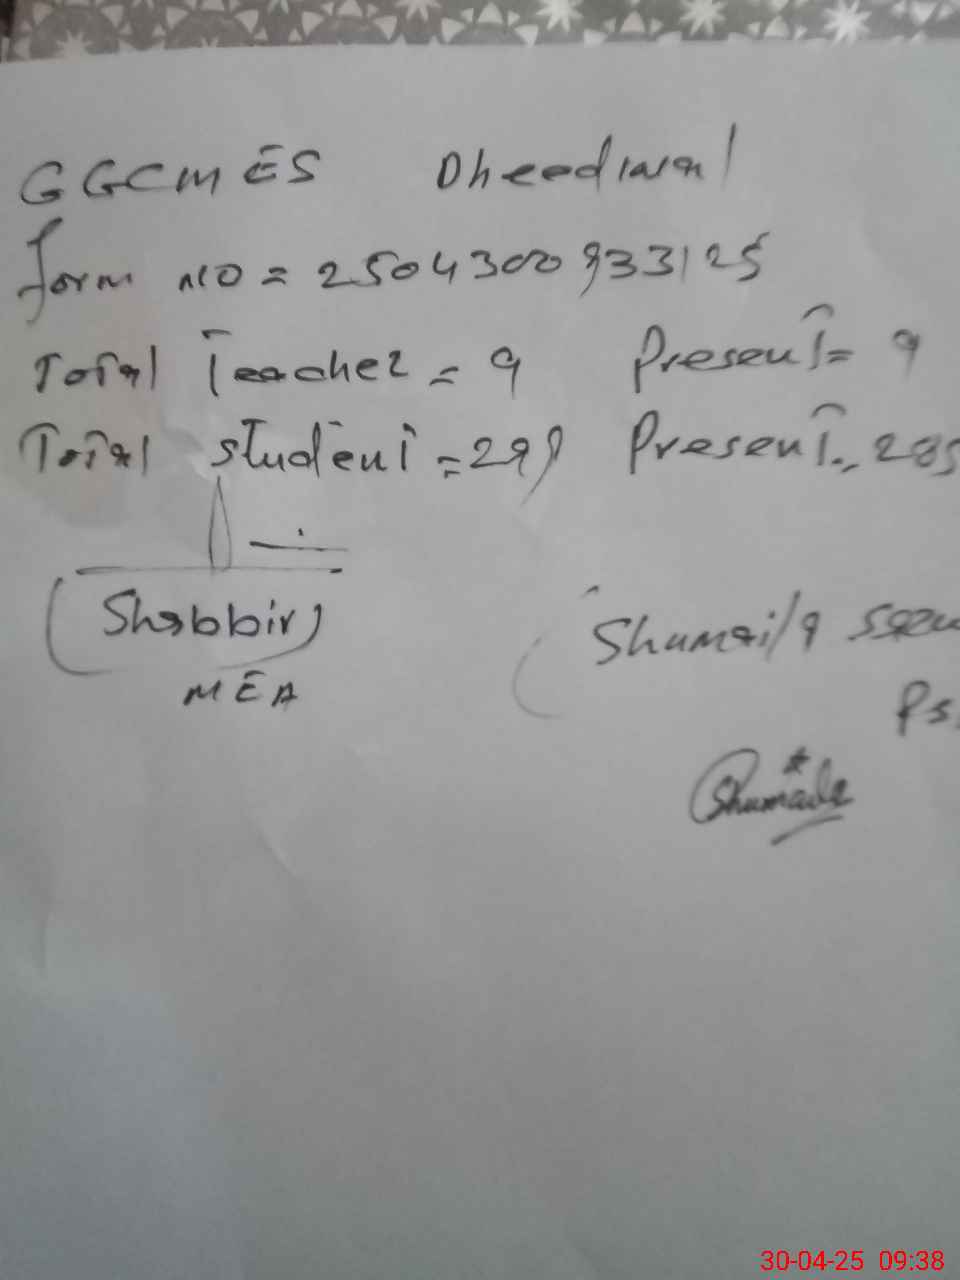 GGCMES Dheediwal
form NO = 2504300933125
Total Teacher = 9 Present = 9
Total student = 299 Present = 285
(Shabbir)
MEA
(Shumaila
Shumaila
30-04-25 09:38